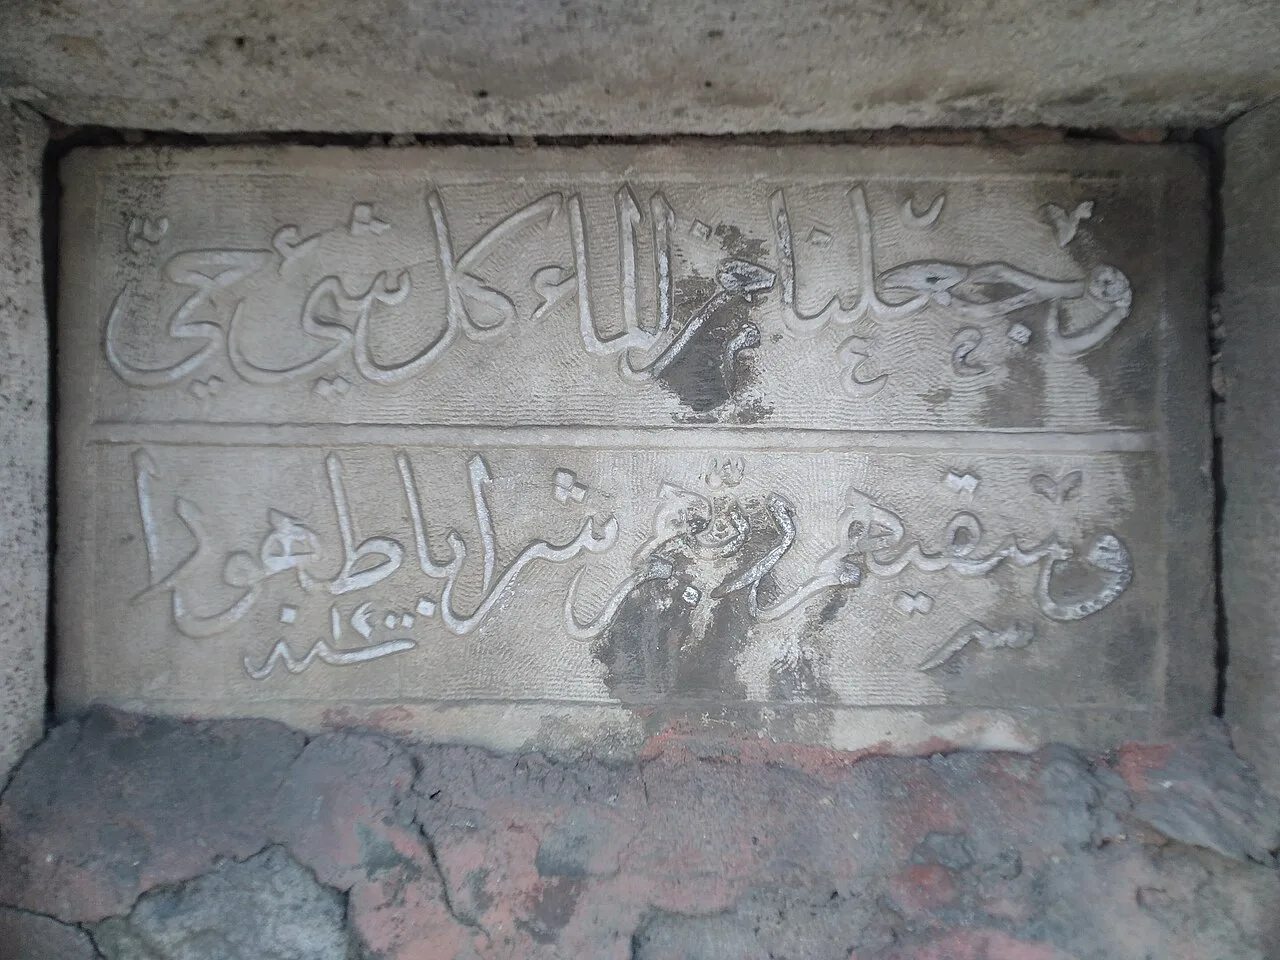 وجعلنا من الماء كل شئ حي
وسقيهم ربهم شرابا طهورا
سنه ١٢٠٠